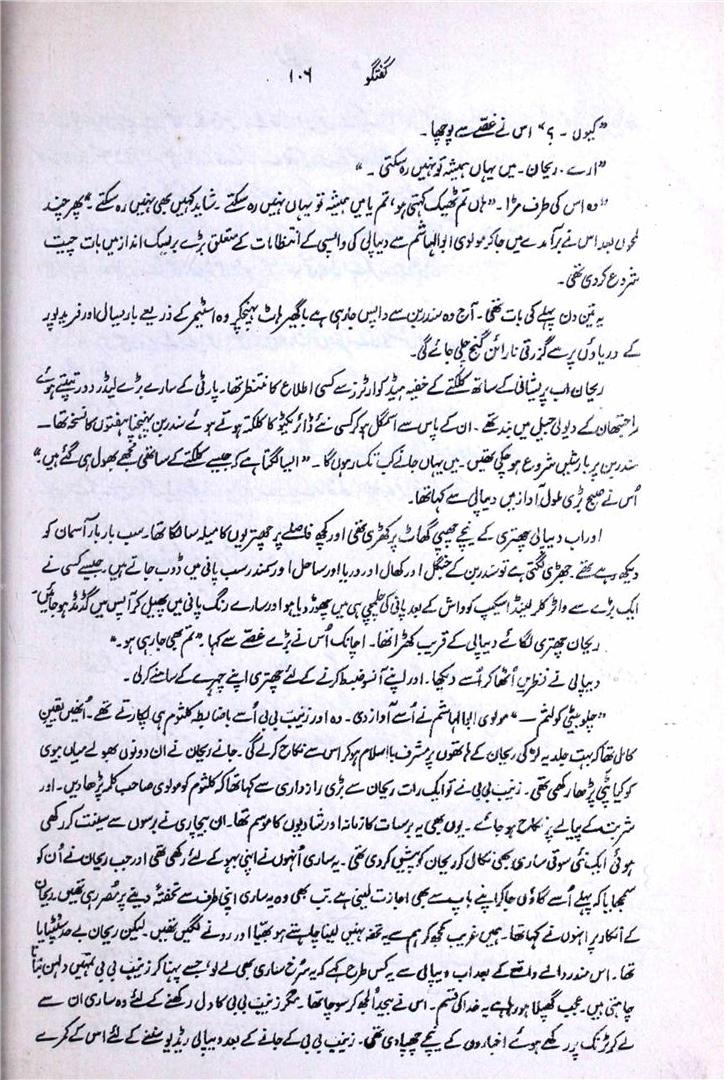 گفتگو ۱۰۶
”کیوں ۔ ؟“ اس نے غصے سے پوچھا ۔
”ارے ۔ ریحان ۔ میں یہاں ہمیشہ تو نہیں رہ سکتی ۔“
”وہ اس کی طرف مڑا ۔ ”ہاں تم ٹھیک کہتی ہو، تم یا میں ہمیشہ تو یہاں نہیں رہ سکتے ۔ شاید کہیں بھی نہیں رہ سکتے ۔“ پھر چند
لمحوں بعد اس نے برآمدے میں جاکر مولوی ابوالہاشم سے دیپالی کی واپسی کے انتظامات کے متعلق بڑے پرلیک انداز میں بات چیت
شروع کردی تھی ۔
یہ تین دن پہلے کی بات تھی ۔ آج وہ سندربن سے واپس جارہی ہے باگھیر ہاٹ پہنچکر وہ اسٹیمر کے ذریعے باریسال اور فریدپور
کے دریاؤں پر سے گزرتی نارائن گنج چلی جائے گی ۔
ریحان اب پریشانی کے ساتھ کلکتے کے خفیہ ہیڈکوارٹرز سے کسی اطلاع کا منتظر تھا ۔ پارٹی کے سارے بڑے لیڈر دور تپتے ہوئے
راجستھان کے دیولی جیل میں بند تھے ۔ ان کے پاس سے اسمگل ہو کر کسی نئے ڈائرکٹو کا کلکتہ ہوتے ہوئے سندربن پہنچنا ہفتوں کا نسخہ تھا ۔
سندربن پر بارشیں شروع ہوچکی تھیں ۔ میں یہاں جانے کب تک رہوں گا ۔ ”ایسا لگتا ہے کہ جیسے کلکتے کے ساتھی مجھے بھول ہی گئے ہیں ۔“
اُس نے صبح بڑی ملول آواز میں دیپالی سے کہا تھا ۔
اور اب دیپالی چھتری کے نیچے چھپی گھاٹ پر کھڑی تھی اور کچھ فاصلے پر چھتریوں کا میلہ سا لگا تھا ۔ سب بار بار آسمان کو
دیکھ رہے تھے ۔ جھڑی لگتی ہے تو سندربن کے جنگل اور کھال اور دریا اور ساحل اور سمندر سب پانی میں ڈوب جاتے ہیں ۔ جیسے کسی نے
ایک بڑے سے واٹر کلر لینڈ اسکیپ کو واش کے بعد پانی کی چلمچی ہی میں چھوڑ دیا ہو اور سارے رنگ پانی میں پھیل کر آپس میں گڈمڈ ہوجائیں ۔
ریحان چھتری لگائے دیپالی کے قریب کھڑا تھا ۔ اچانک اُس نے بڑے غصے سے کہا ۔ ”تم بھی جارہی ہو ۔“
دیپالی نے نظریں اُٹھاکر اُسے دیکھا ۔ اور اپنے آنسو ضبط کرنے کے لئے چھتری اپنے چہرے کے سامنے کرلی ۔
”چلو بیٹی کولثم —“ مولوی ابوالہاشم نے اُسے آواز دی ۔ وہ اور زینب بی بی اُسے باضابطہ کلثوم ہی پکارتے تھے ۔ اُنھیں یقین
کامل تھا کہ بہت جلد یہ لڑکی ریحان کے ہاتھوں پر مشرف بااسلام ہوکر اس سے نکاح کرلے گی ۔ جانے ریحان نے ان دونوں بھولے میاں بیوی
کو کیا پٹی پڑھا رکھی تھی ۔ زینب بی بی نے تو ایک رات ریحان سے بڑی رازداری سے کہا تھا کہ کلثوم کو مولوی صاحب کلمہ پڑھا دیں ۔ اور
شربت کے پیالے پر نکاح ہوجائے ۔ یوں بھی یہ برسات کا زمانہ اور شادیوں کا موسم تھا ۔ ان بیچاری نے برسوں سے سینت کر رکھی
ہوئی ایک نئی سوتی ساری بھی نکال کر ریحان کو پیش کردی تھی ۔ یہ ساری اُنہوں نے اپنی بہو کے لئے رکھی تھی اور جب ریحان نے اُن کو
سمجھایا کہ پہلے اُسے گاؤں جاکر اپنے باپ سے بھی اجازت لینی ہے تب بھی وہ یہ ساری اپنی طرف سے تحفتہً دینے پر مُصر رہی تھیں ۔ ریحان
کے انکار پر انہوں نے کہا تھا ۔ ہمیں غریب سمجھ کر ہم سے یہ تحفہ نہیں لینا چاہتے ہو بھیّا اور رونے لگیں تھیں ۔ لیکن ریحان بے حد سٹپٹایا
تھا ۔ اس مندر والے واقعے کے بعد اب دیپالی سے یہ کس طرح کہے کہ یہ سُرخ ساری بھی لے لو جسے پہنا کر زینب بی بی تمہیں دلہن بنانا
چاہتی ہیں ۔ عجب گھپلا ہورہا ہے خدا کی قسم ۔ اس نے بیحد اُلجھ کر سوچا تھا ۔ مگر زینب بی بی کا دل رکھنے کے لئے وہ ساری ان سے
لے کر ٹرنک پر رکھے ہوئے اخباروں کے نیچے چھپا دی تھی ۔ زینب بی بی کے جانے کے بعد دیپالی ریڈیو سننے کے لئے اس کے کمرے